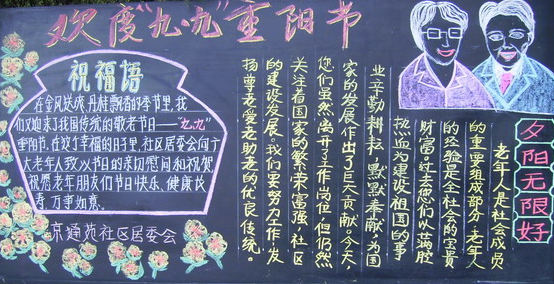 欢度"九·九"重阳节
祝福语
在金风送爽,丹桂飘香的季节里,我
们又迎来了我国传统的敬老节日——"九.九"
重阳节,在这个幸福的日子里,社区居委会向广
大老年人致以节日的亲切慰问和祝贺,
祝愿老年朋友们节日快乐、健康长
寿、万事如意。
京通苑社区居委会
夕阳无限好
老年人是社会成员
的重要组成部分,老年人
的经验是全社会的宝贵
财富。过去您们以满腔
热血为建设祖国的事
业辛勤耕耘,默默奉献,为国
家的发展作出了巨大贡献。今天,
您们虽然离开了工作岗位,但仍然
关注着国家的繁荣富强,社区
的建设发展。我们要努力工作,发
扬尊老爱老助老的优良传统。